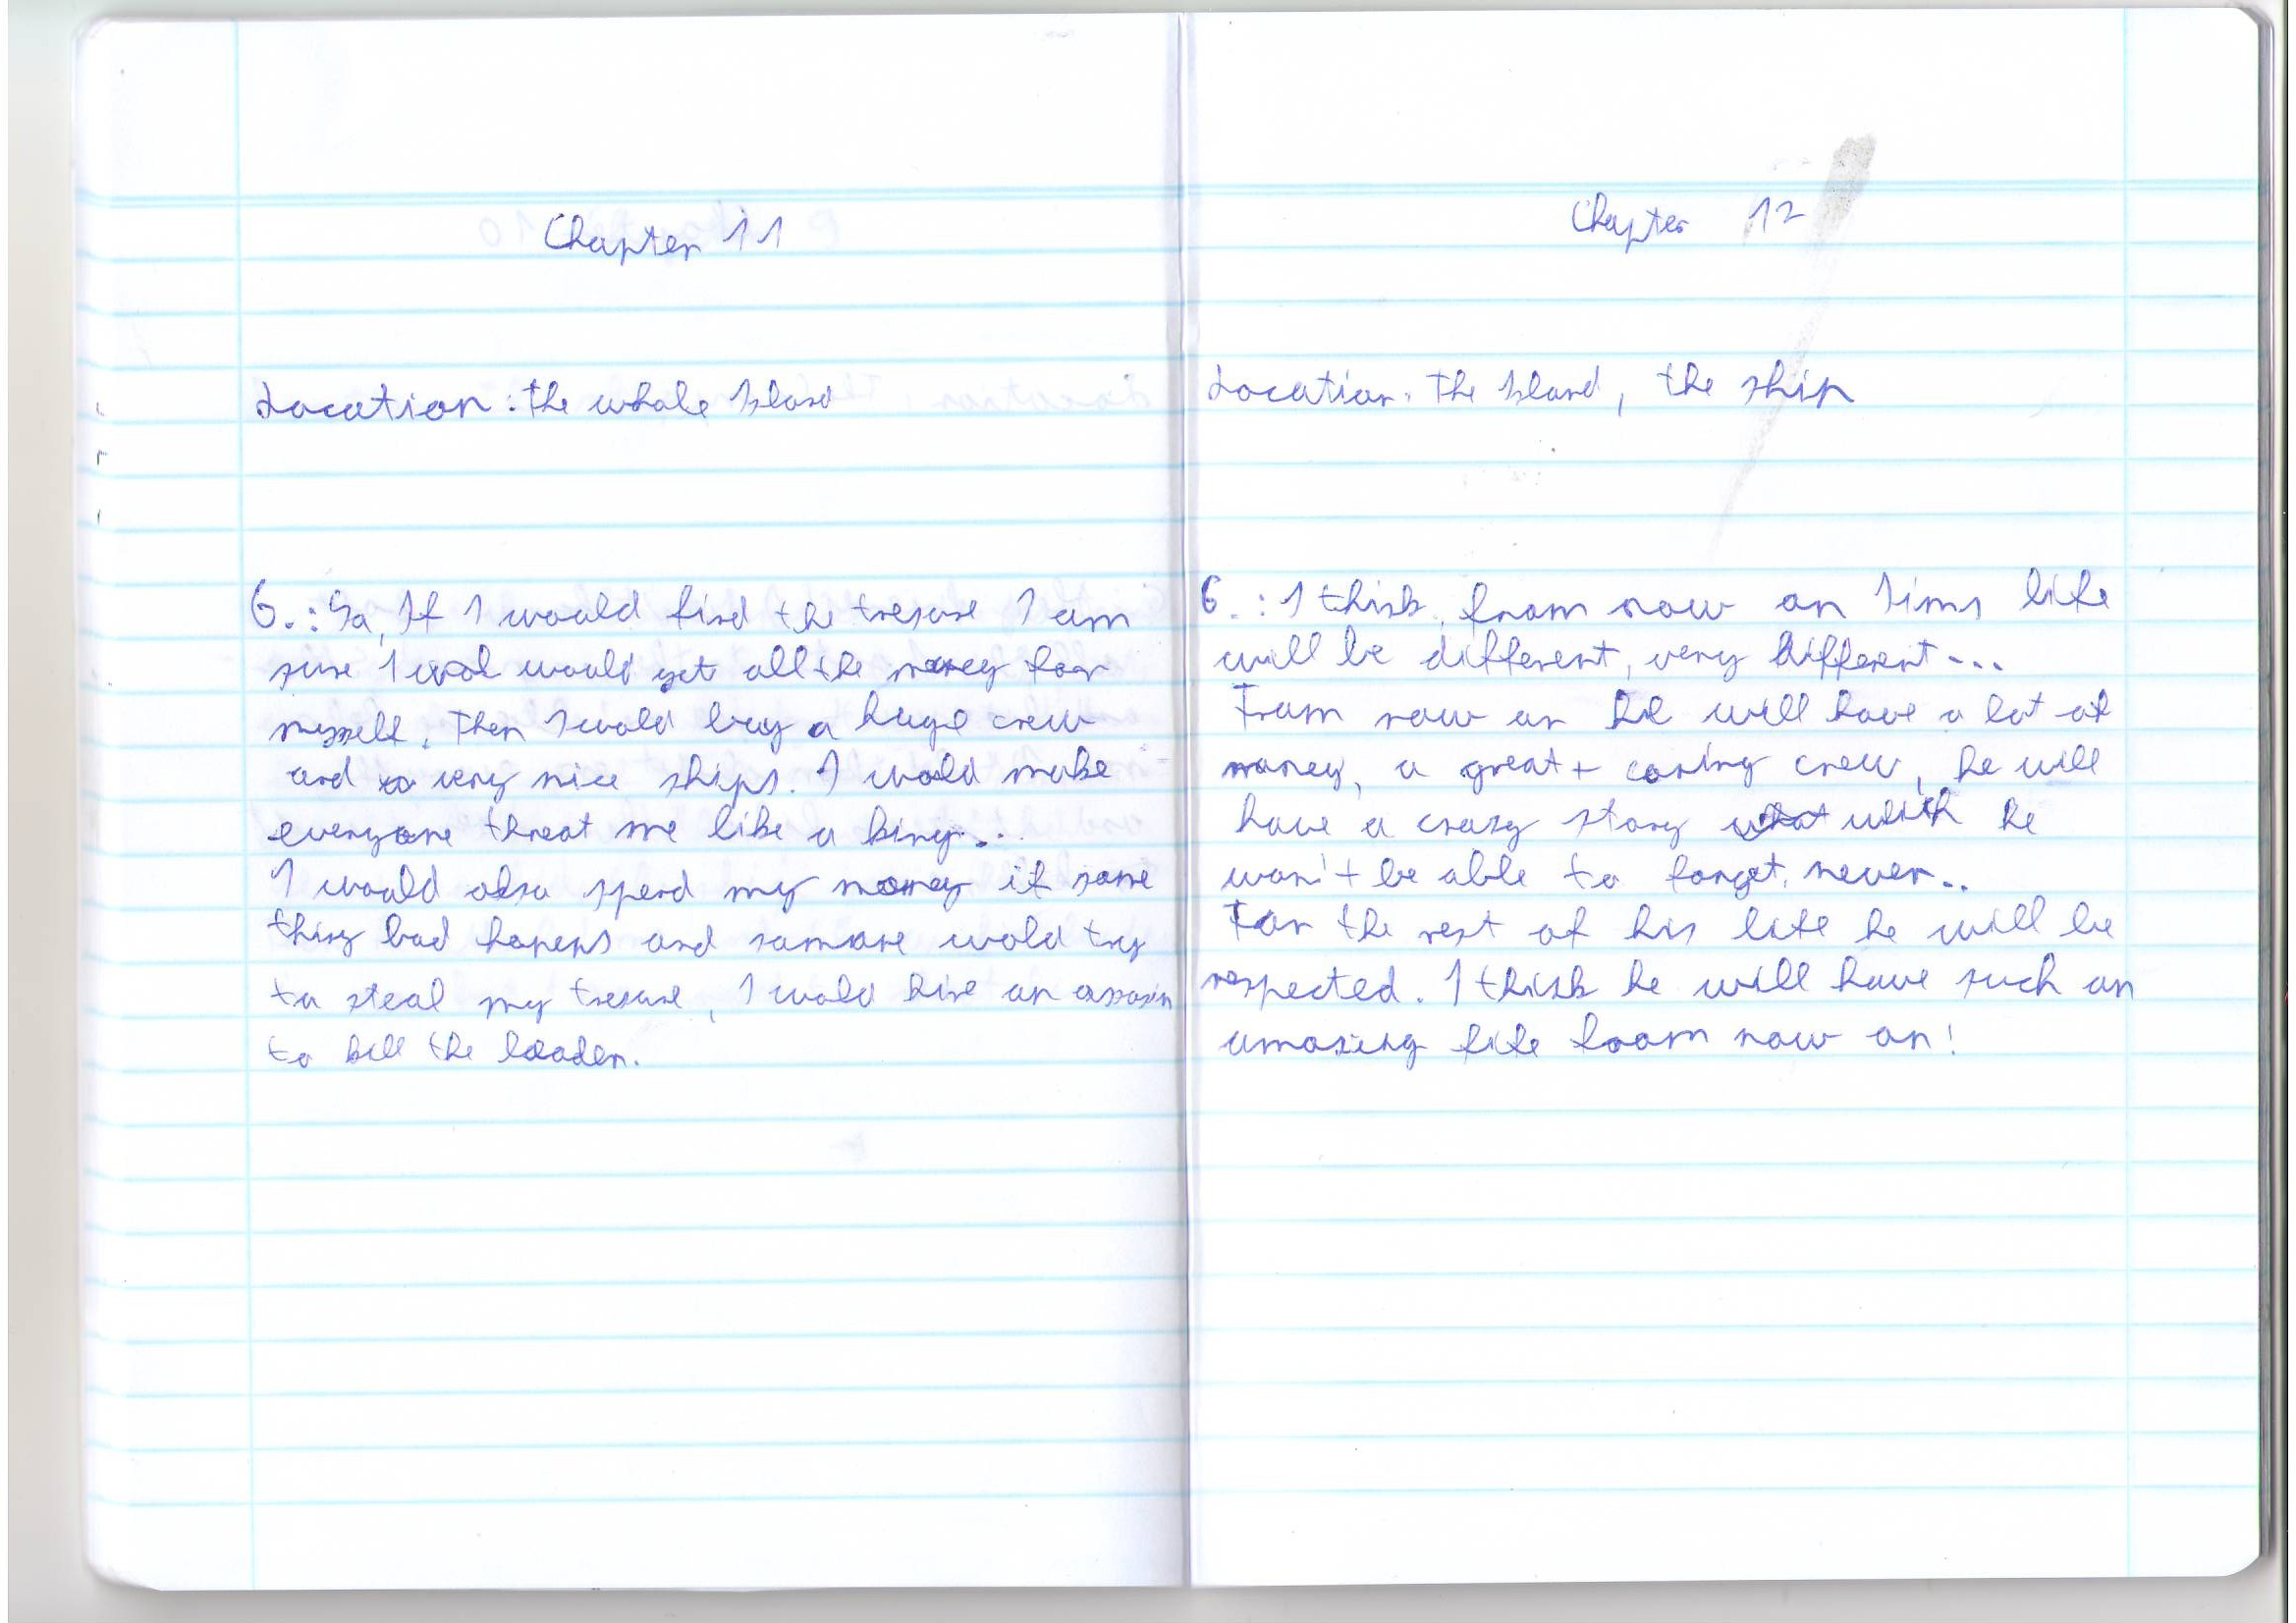 Chapter 11
Location: the whole Island
G.: So, If I would find the tresure I am
sure I would get all the money for
myself. Then I wold buy a huge crew
and very nice ships. I wold make
everyone threat me like a king...
I would also spend my money if some
thing bad hapens and someone wold try
to steal my tresure, I wold hire an assasin
to kill the leader.
Chapter 12
Location: The Island, the ship
G.: I think, from now on Jims life
will be different, very different...
From now on he will have a lot of
money, a great + caring crew, he will
have a crazy story he
won't be able to forget, never..
For the rest of his life he will be
respected. I think he will have such an
amazing life foom now on!